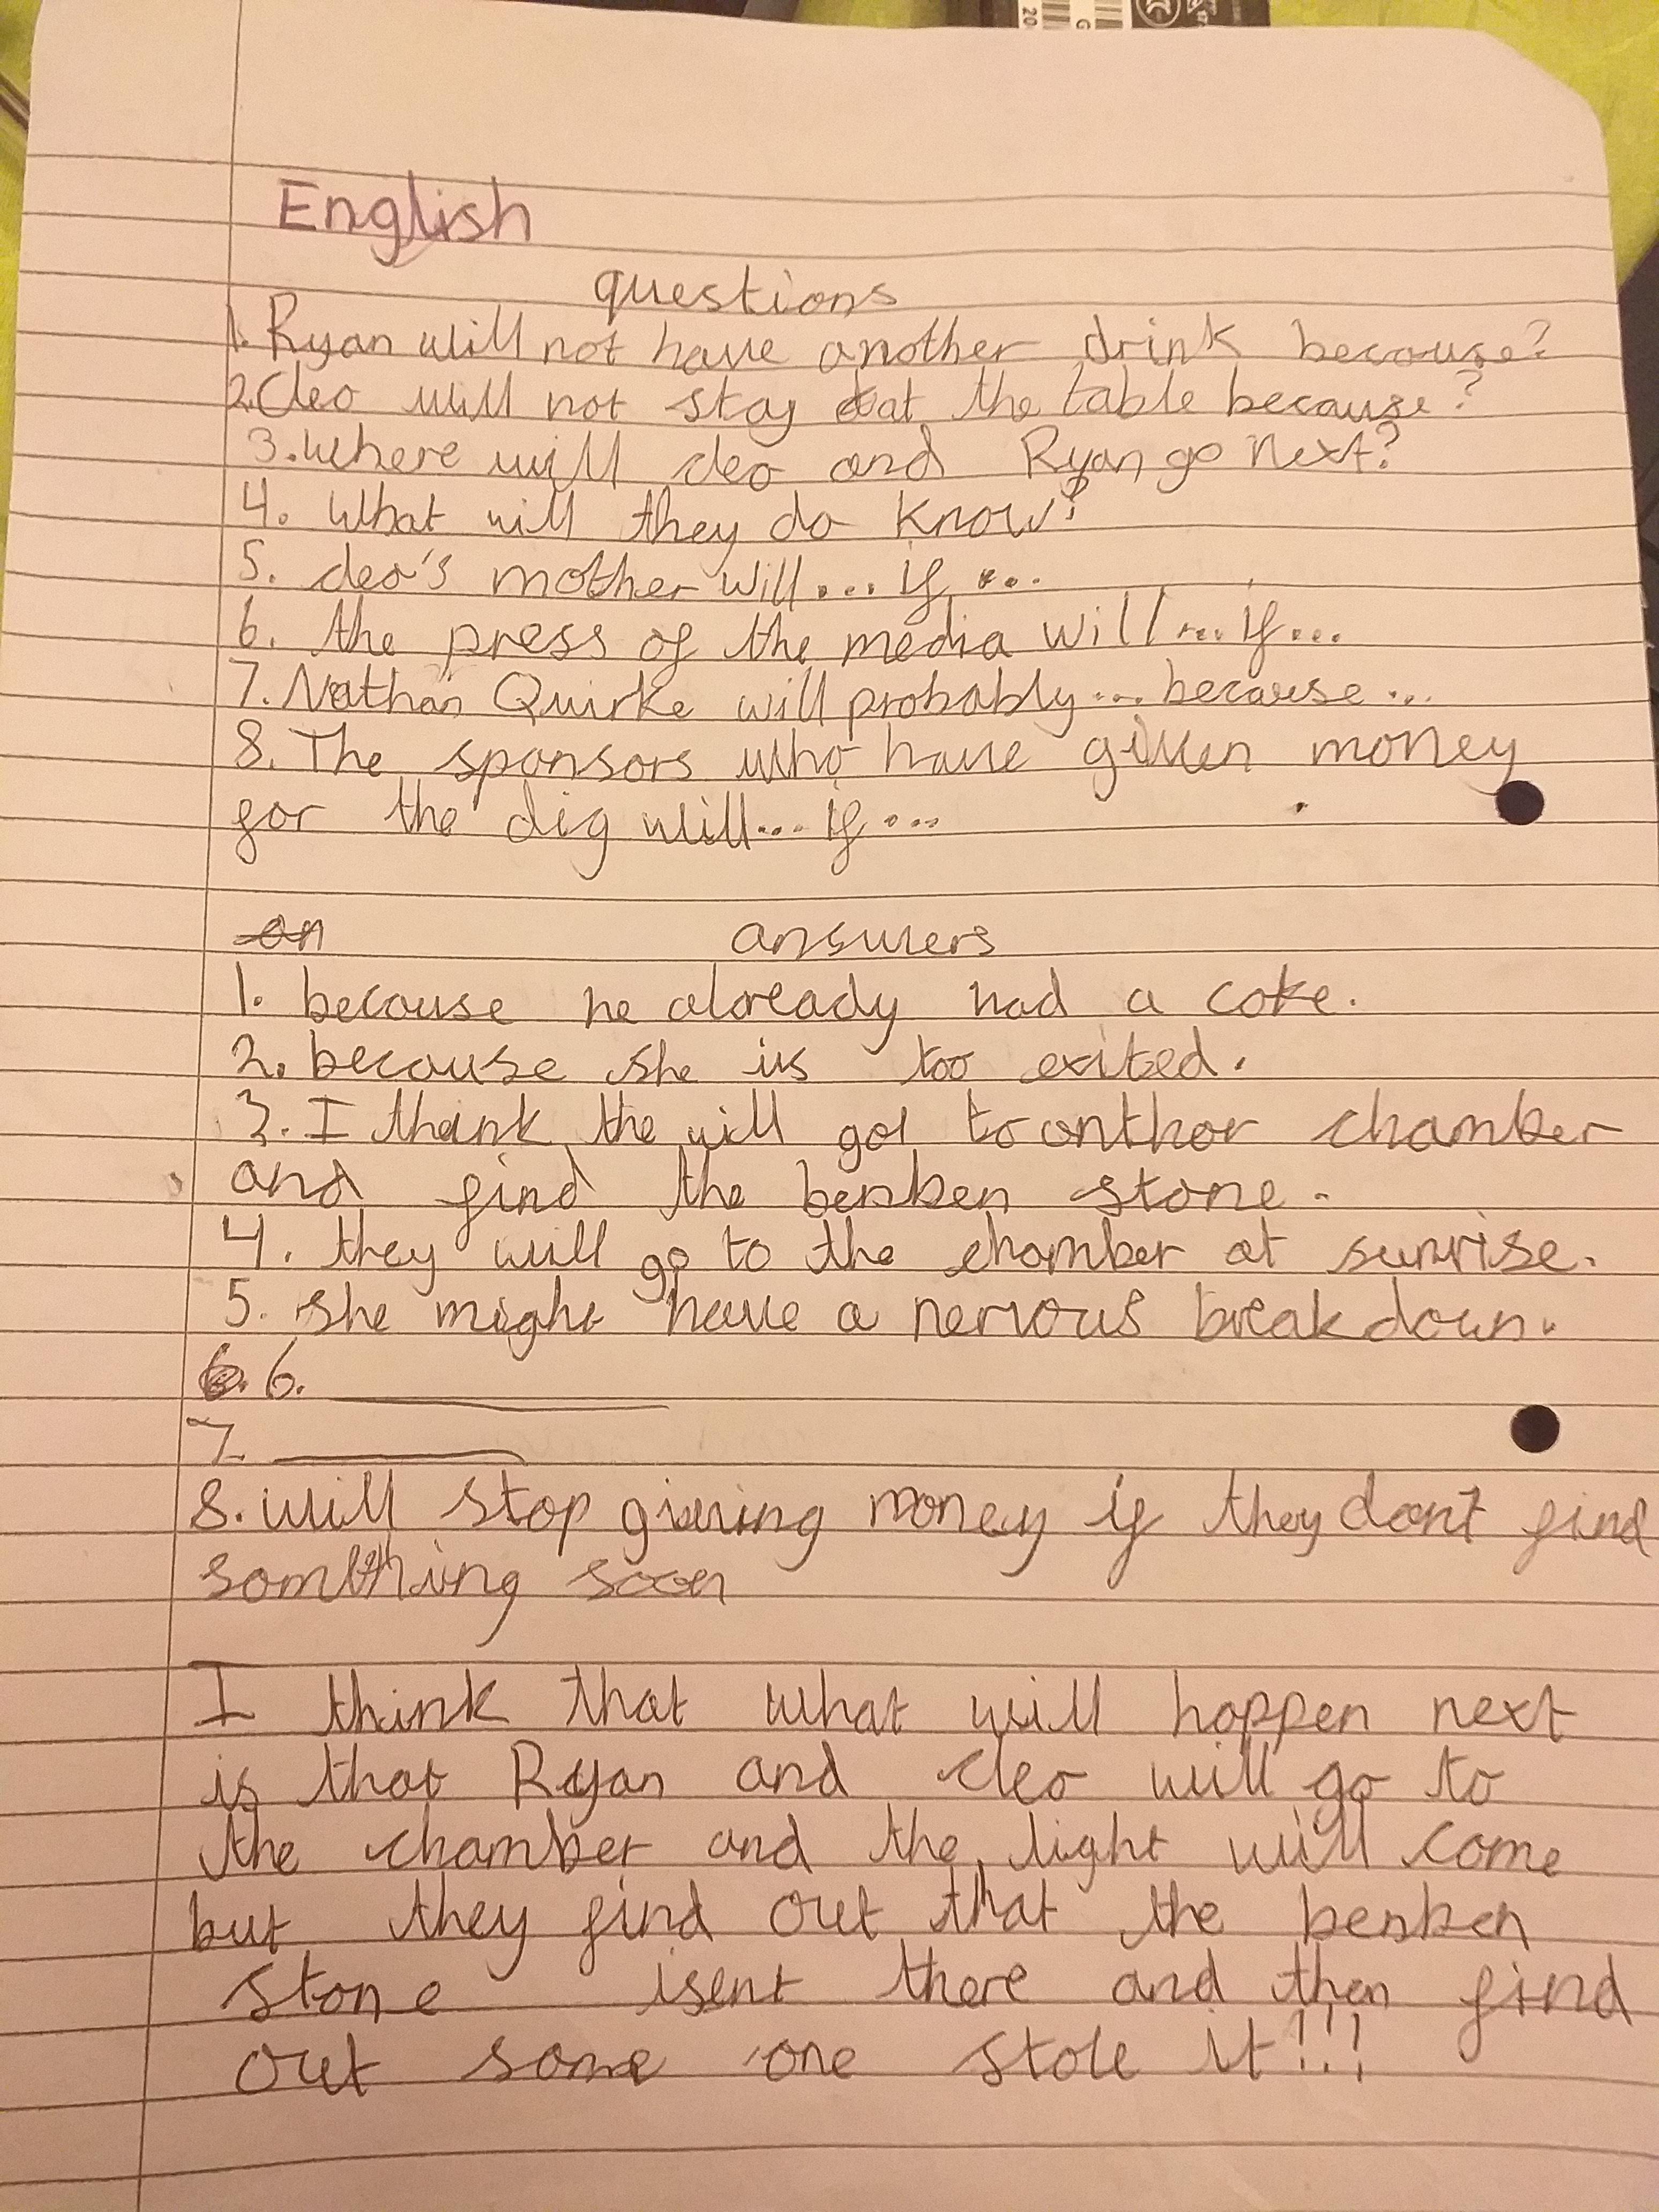 English
questions
1. Ryan will not have another drink because?
2. Cleo will not stay at the table because?
3. Where will cleo and Ryan go next?
4. What will they do know?
5. cleo's mother will... if ...
6. the press of the media will... if...
7. Nathan Quirke will probably... because...
8. The sponsors who have given money
for the dig will... if...
an answers
1. because he already had a coke.
2. because she is too exited.
3. I think the will go to onthor chamber
and find the benben stone.
4. they will go to the chamber at sunrise.
5. she might have a nervous breakdown.
6.
7.
8. will stop giving money if they don't find
something soon
I think that what will happen next
is that Ryan and cleo will go to
the chamber and the light will come
but they find out that the benben
stone isent there and then find
out some one stole it!!!